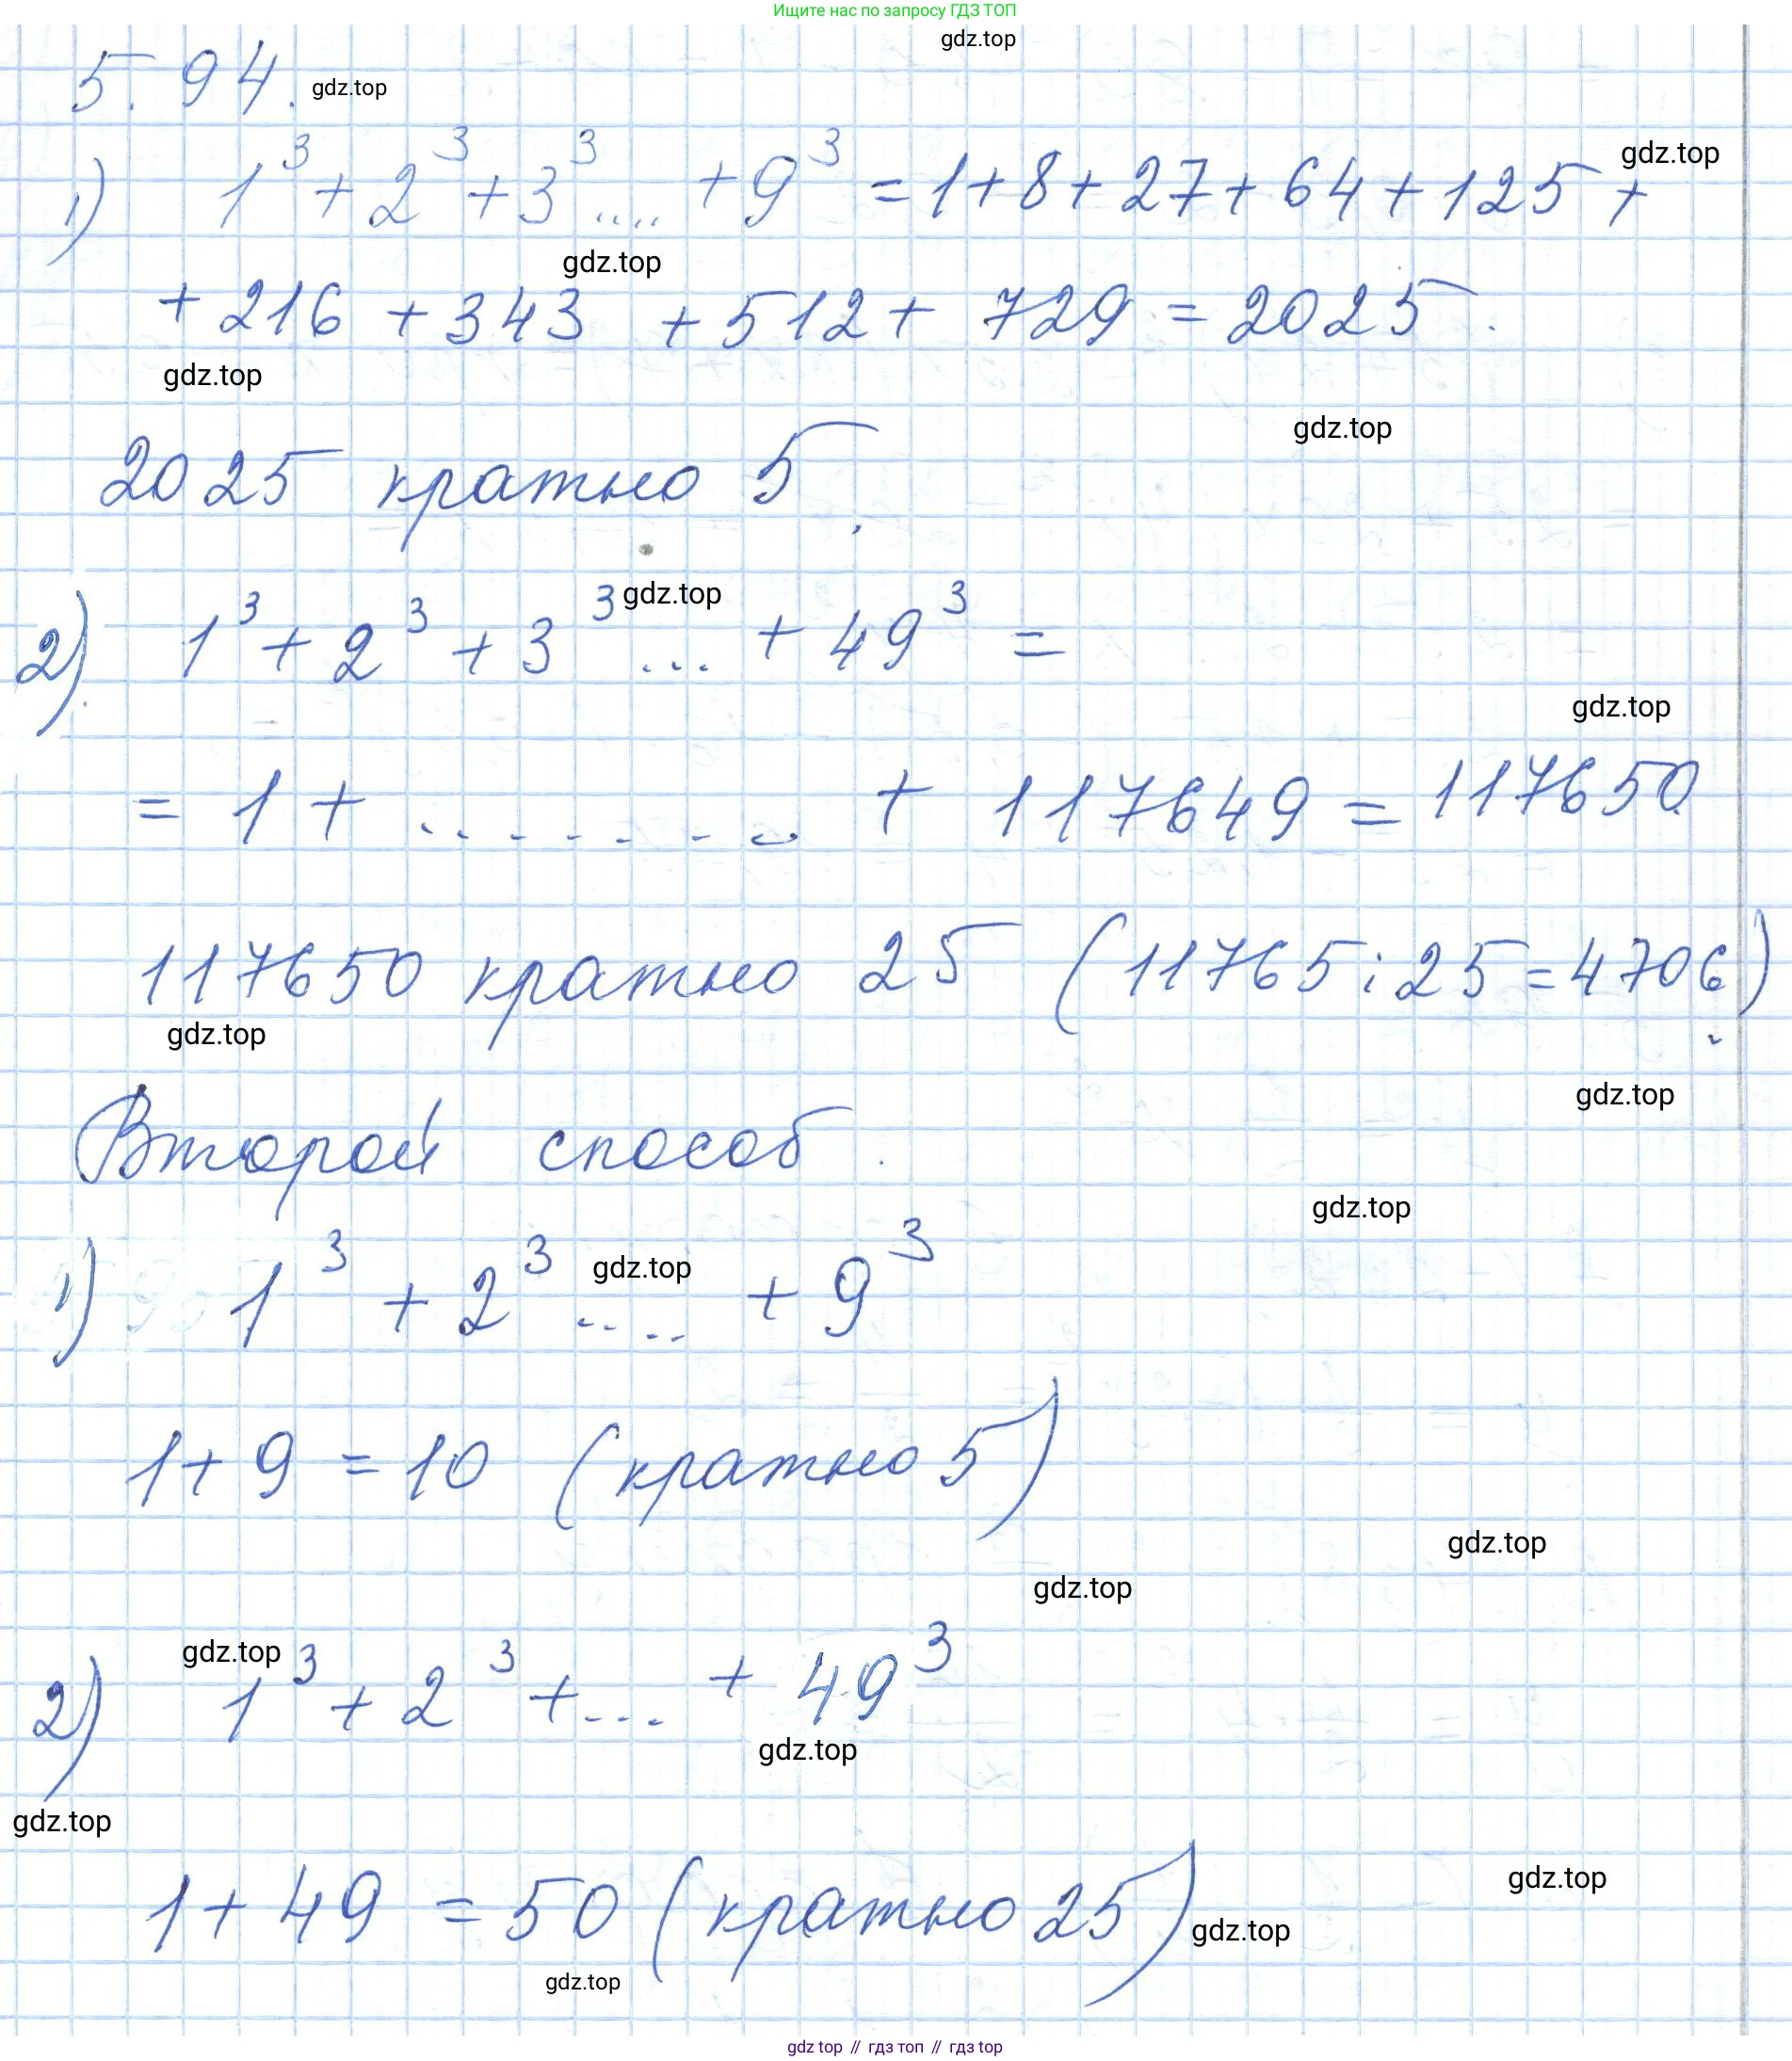 Ищите нас по запросу ГДЗ ТОП
gdz.top
5.94. gdz.top
1) 1³ + 2³ + 3³ .... + 9³ = 1 + 8 + 27 + 64 + 125 + gdz.top
gdz.top
+ 216 + 343 + 512 + 729 = 2025.
gdz.top
gdz.top
2025 кратно 5.
2) 1³ + 2³ + 3³ ... + 49³ = gdz.top
gdz.top
= 1 + ........ + 117649 = 117650
117650 кратно 25 (11765 : 25 = 4706)
gdz.top
gdz.top
Второй способ.
gdz.top
1) 1³ + 2³ .... + 9³ gdz.top
1 + 9 = 10 (кратно 5)
gdz.top
gdz.top
gdz.top
2) 1³ + 2³ + ... + 49³
gdz.top
gdz.top
gdz.top
1 + 49 = 50 (кратно 25) gdz.top
gdz.top
gdz top // гдз топ // гдз top